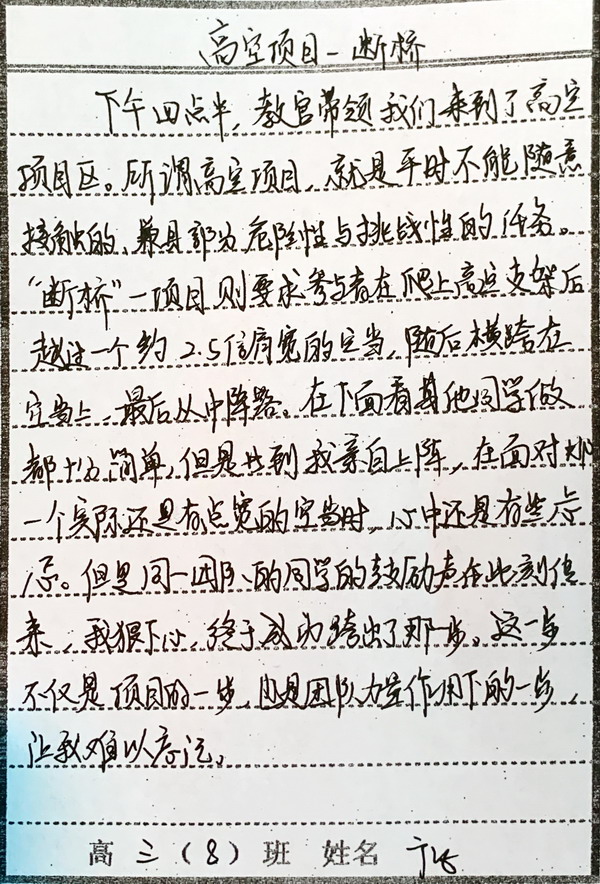 高空项目—断桥
下午四点半,教官带领我们来到了高空
项目区。所谓高空项目,就是平时不能随意
接触的、兼具部分危险性与挑战性的任务。
“断桥”一项目则要求参与者在爬上高空支架后
越过一个约2.5倍肩宽的空当,随后横跨在
空当上,最后从中降落。在下面看其他同学做
都十分简单,但是当到我亲自上阵,在面对
一个实际还是有点宽的空当时,心中还是有些忐
忑。但是同一团队的同学的鼓励声在此刻传
来,我狠下心,终于成功跨出了那一步。这一步
不仅是项目的一步,也是团队力量作用下的一步,
让我难以忘记。
高三(8)班 姓名